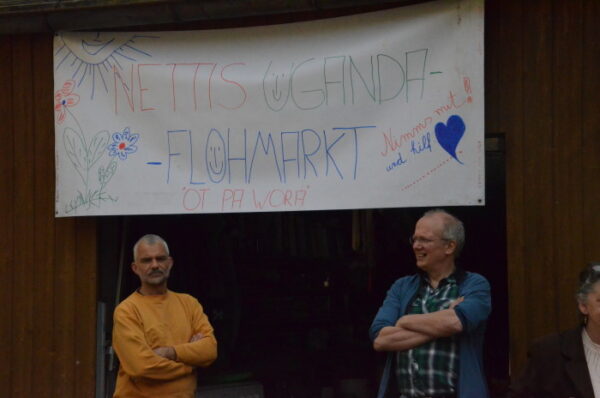 NETTIS UGANDA-
-FLOHMARKT
Nimms mit!
und hilf
"OT PA WORA"